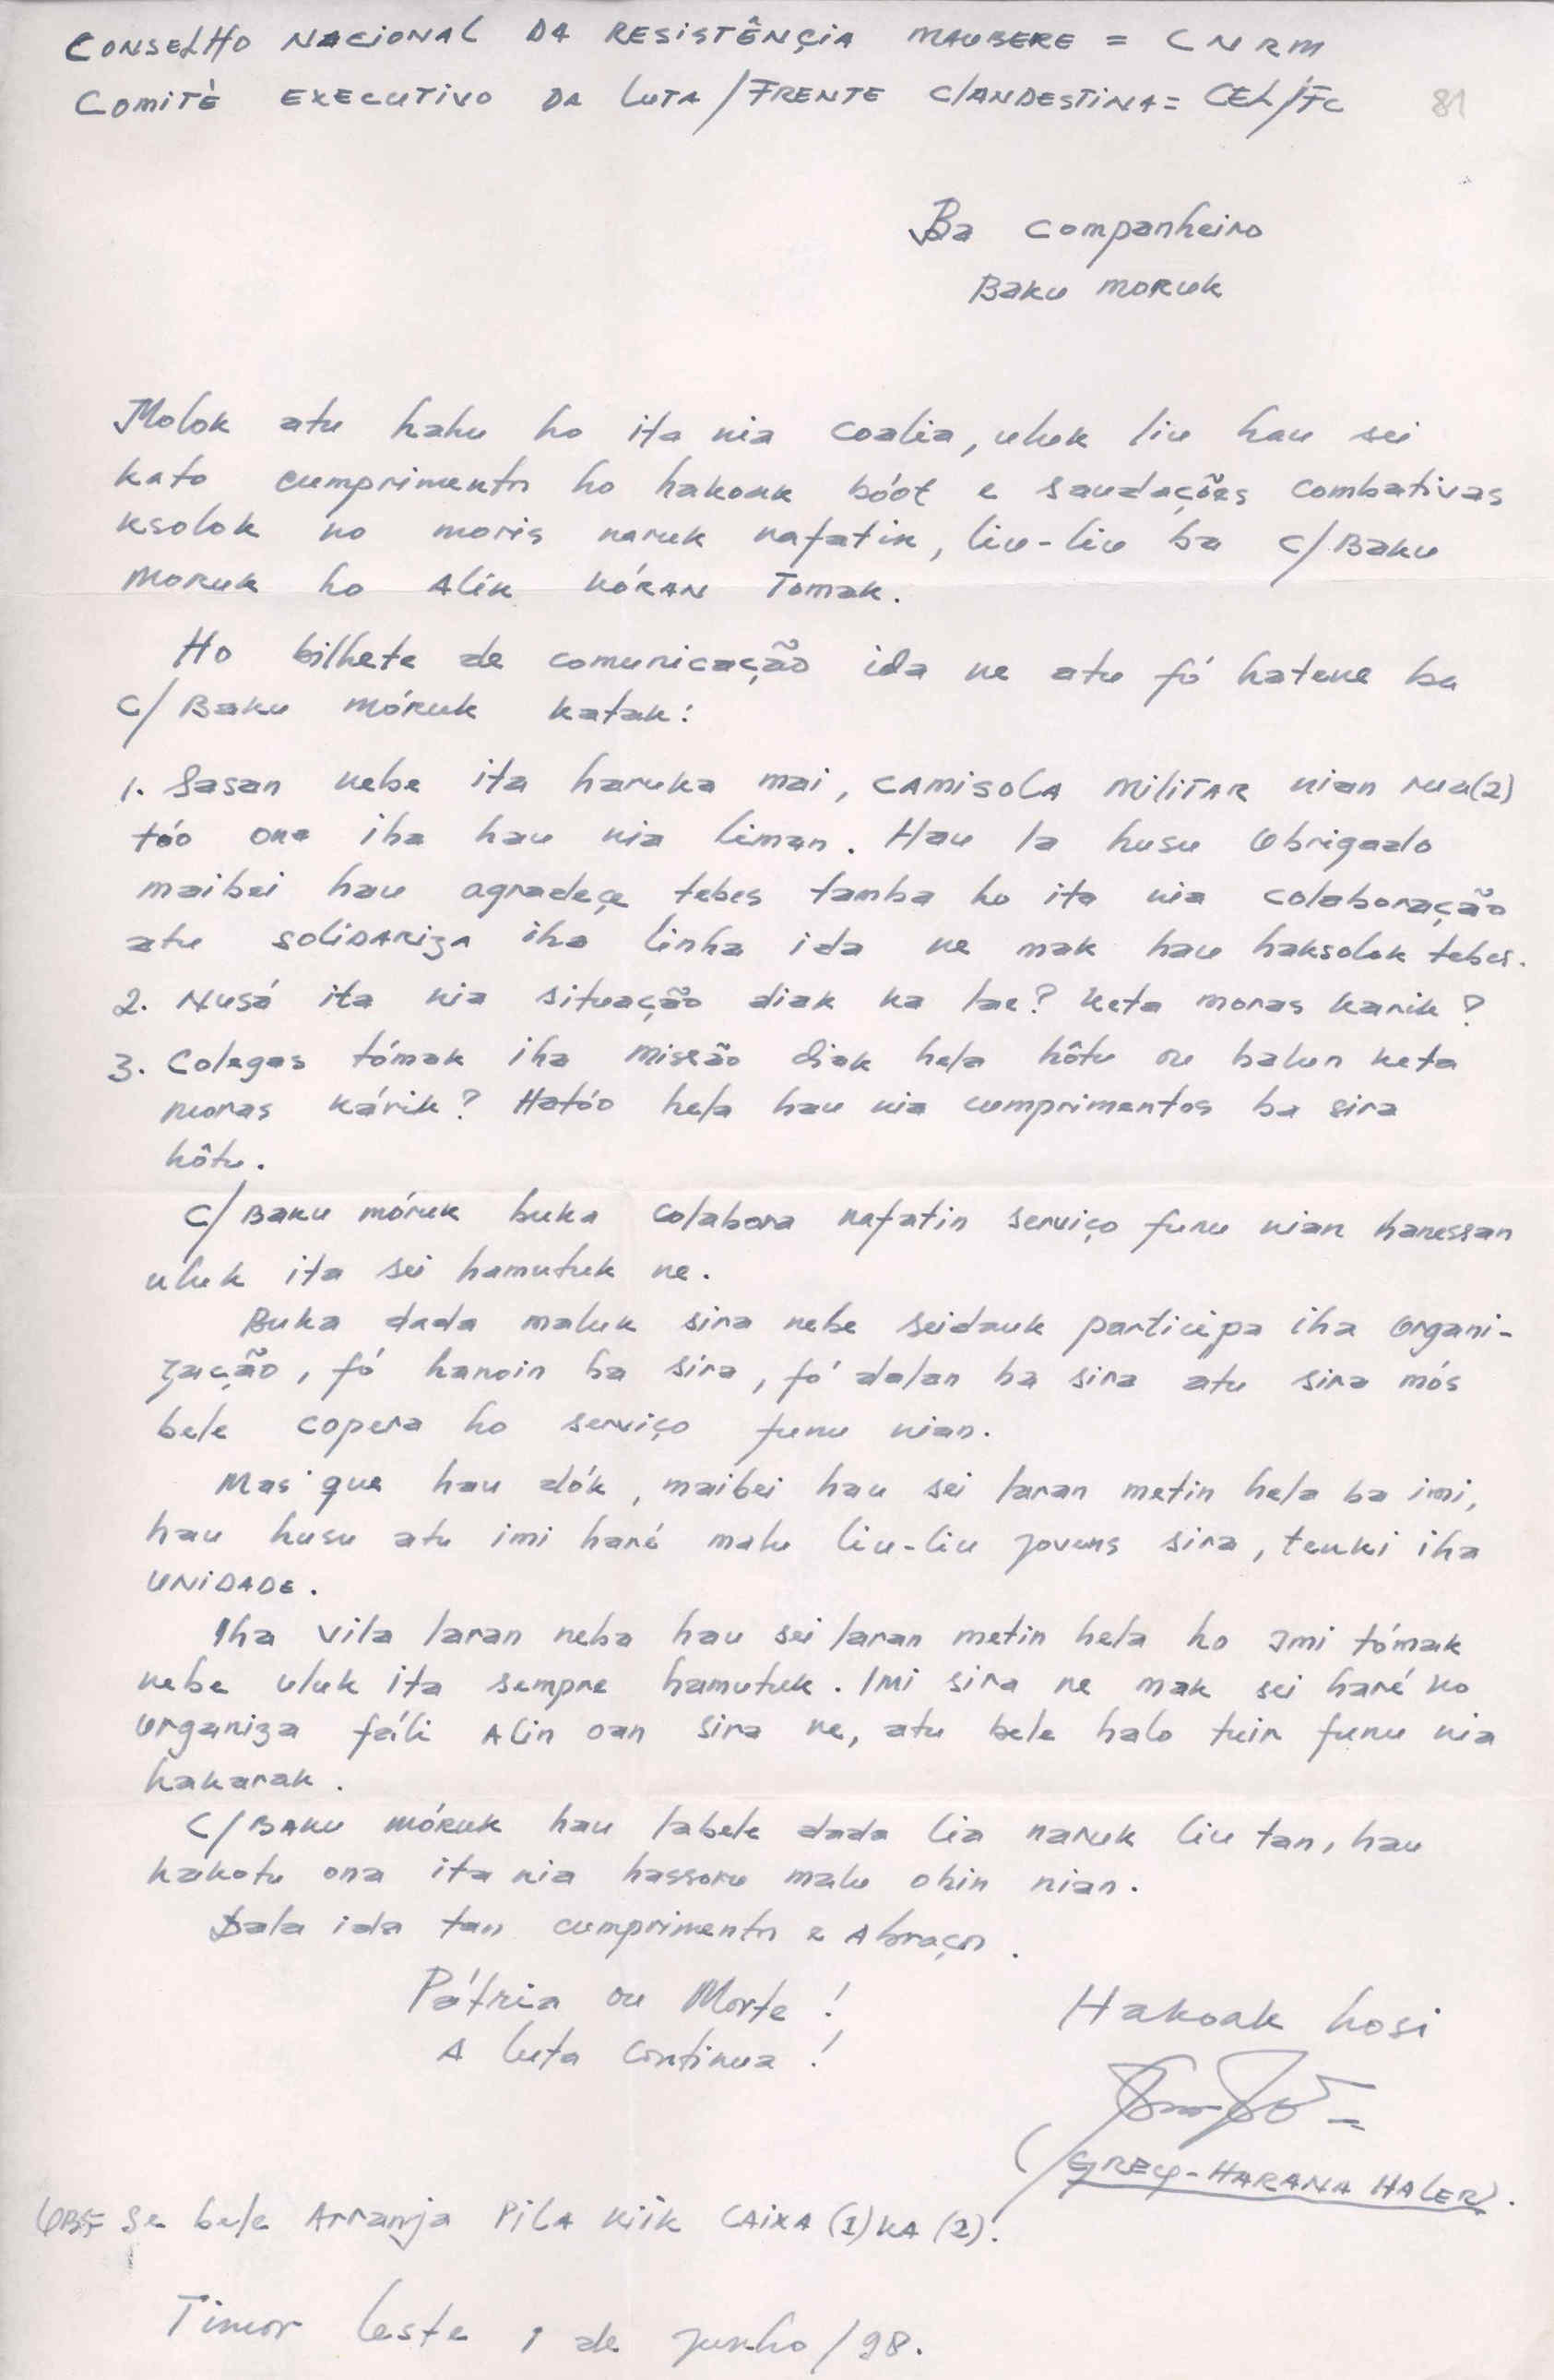 CONSELHO NACIONAL DA RESISTÊNÇIA MAUBERE = CNRM
COMITÈ EXECUTIVO DA LUTA/FRENTE CLANDESTINA= CEL/FC
81
Ba companheiro
Baku MORUK
Molok atu hahu ho ita nia coalia, uluk liu hau sei
kato cumprimentos ho hakoak bóot e saudações combativas
ksolok no moris naruk nafatin, liu-liu ba C/Baku
MORUK ho Alin KÓRAN Tomak.
Ho bilhete de comunicação ida ne atu fó hatene ba
C/Baku MÓRUK katak:
1. Sasan nebe ita haruka mai, CAMISOLA MILITAR nian rua(2)
tóo ona iha hau nia liman. Hau la husu Obrigado
maibei hau agradeçe tebes tamba ho ita nia colaboração
atu soliDARiza iha linha ida ne mak hau haksolok tebes.
2. Nusá ita nia situação diak ka lae? Keta moras karik?
3. Colegas tómak iha missão diak hela hôtu ou balun keta
moras kárik? Hatóo hela hau nia cumprimentos ba sira
hôtu.
C/Baku móruk buka colabora nafatin serviço funu nian hanessan
uluk ita sei hamutuk ne.
Buka dada maluk sira nebe seidauk participa iha Organi-
zação, fó hanoin ba sira, fó dalan ba sira atu sira mós
bele copera ho serviço funu nian.
Mas que hau dók, maibei hau sei laran metin hela ba imi,
hau husu atu imi haré malu liu-liu jovens sira, tenki iha
UNIDADE.
Iha vila laran neba hau sei laran metin hela ho Imi tómak
nebe uluk ita sempre hamutuk. Imi sira ne mak sei haré no
Organiza fáli Alin oan sira ne, atu bele halo tuir funu nia
hakarak.
C/BAKU MÓRUK hau labele dada lia naruk liu tan, hau
hakotu ona ita nia hassoru malu ohin nian.
Dala ida tan cumprimentos e Abraços.
Pátria ou Morte!
A luta continua!
Hakoak hosi
(GREY-HARANA HALER).
OBS: Se bele Arranja PILA KiiK CAIXA (1) KA (2).
Timor Leste 1 de junho/98.